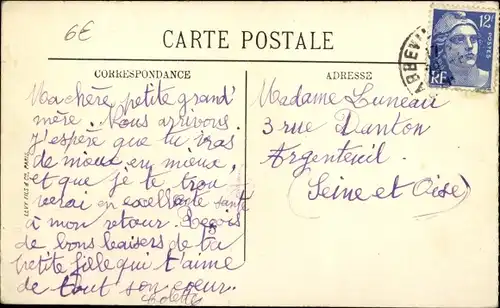 6E
CARTE POSTALE
12F
POSTES
RF
ABBEV
CORRESPONDANCE
ADRESSE
Ma chère petite grand'
mère. Nous arrivons
J'espère que tu vas
de mieux en mieux,
et que je te trou
verai en excellente santé
à mon retour. Reçois
de bons baisers de ta
petite fille qui t'aime
de tout son cœur.
Madame Luneau
3 rue Danton
Argenteuil
(Seine et Oise)
LEVY FILS & CO. PARIS